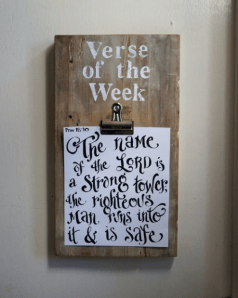 Verse
of the
Week
The name
of the LORD is
a Strong tower;
the righteous
Man runs into
it & is Safe